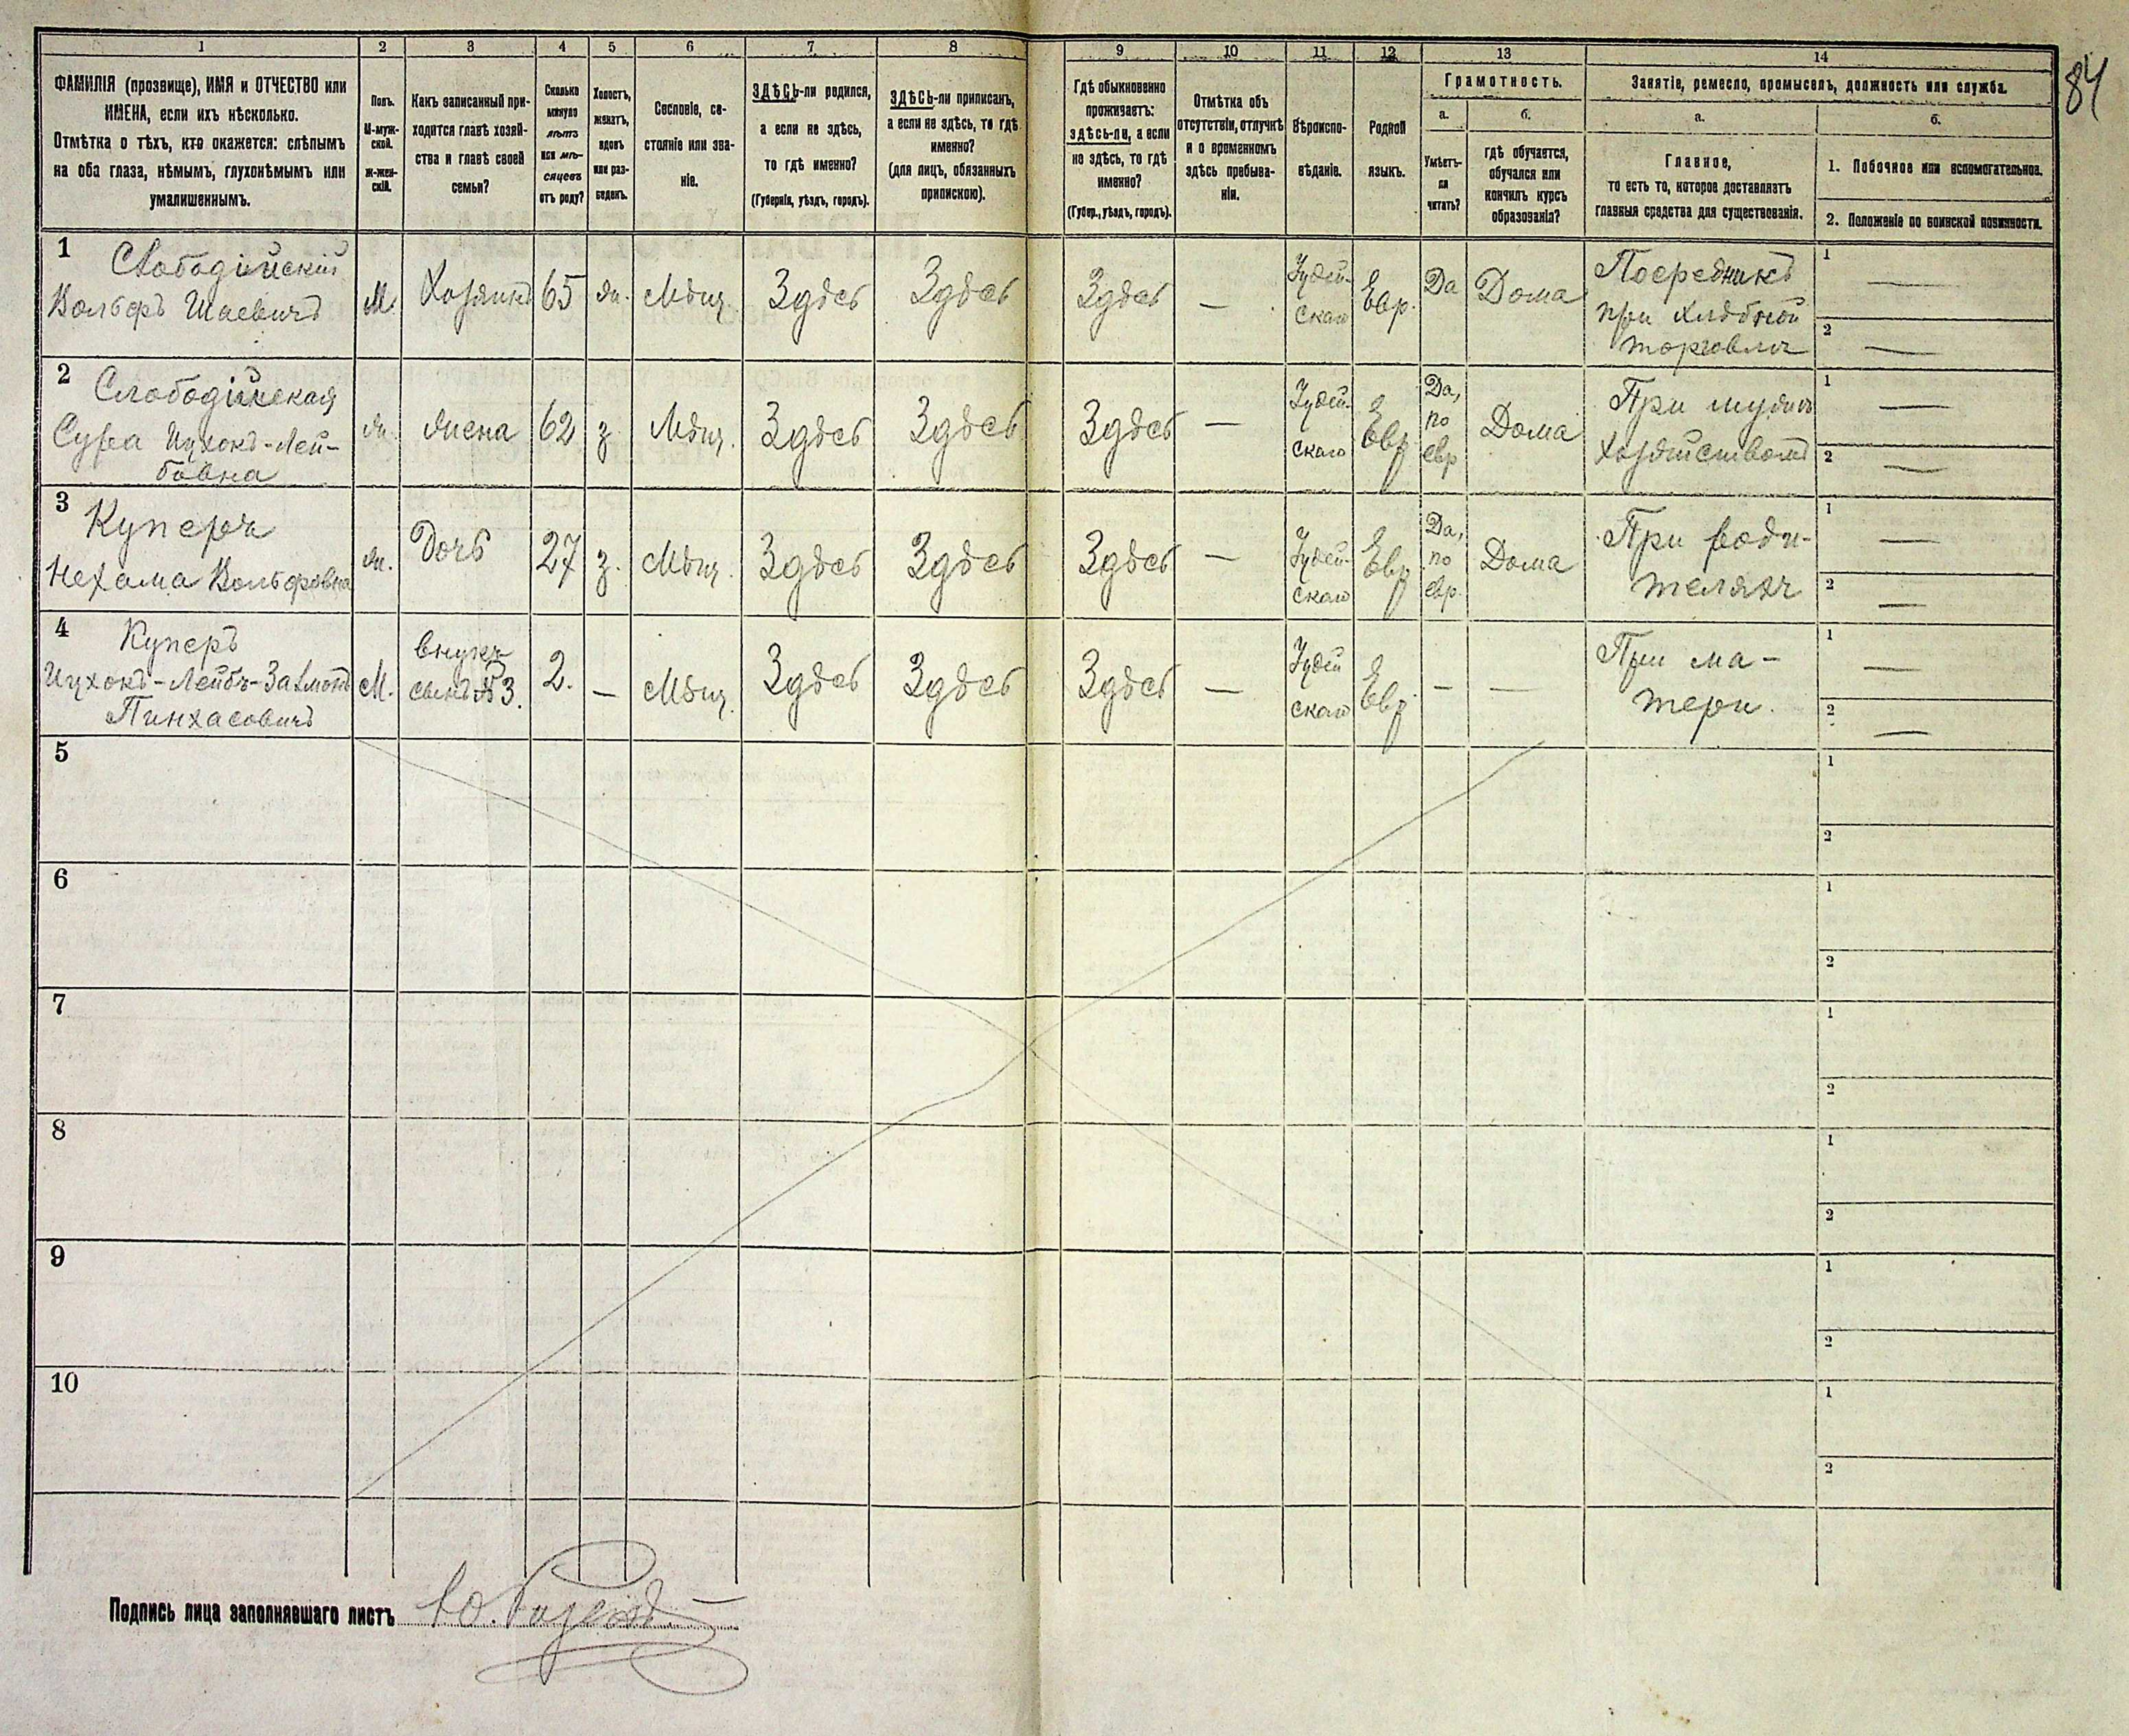 1 2 3 4 5 6 7 8 9 10 11 12 13 14
84
ФАМИЛІЯ (прозвище), ИМЯ и ОТЧЕСТВО или
ИМЕНА, если ихъ нѣсколько.
Отмѣтка о тѣхъ, кто окажется: слѣпымъ
на оба глаза, нѣмымъ, глухонѣмымъ или
умалишеннымъ.
Полъ.
М-муж-
ской.
ж-жен-
скій.
Какъ записанный при-
ходится главѣ хозяй-
ства и главѣ своей
семьи?
Сколько
минуло
лѣтъ
или мѣ-
сяцевъ
отъ роду?
Холостъ,
женатъ,
вдовъ
или раз-
веденъ.
Сословіе, со-
стояніе или зва-
ніе.
ЗДѢСЬ-ли родился,
а если не здѣсь,
то гдѣ именно?
(Губернія, уѣздъ, городъ).
ЗДѢСЬ-ли приписанъ,
а если не здѣсь, то гдѣ
именно?
(для лицъ, обязанныхъ
припискою).
Гдѣ обыкновенно
проживаетъ:
здѣсь-ли, а если
не здѣсь, то гдѣ
именно?
(Губер., уѣздъ, городъ).
Отмѣтка объ
отсутствіи, отлучкѣ
и о временномъ
здѣсь пребыва-
ніи.
Вѣроиспо-
вѣданіе.
Родной
языкъ.
Грамотность.
а.
Умѣетъ-
ли
читать?
б.
гдѣ обучается,
обучался или
кончилъ курсъ
образованія?
Занятіе, ремесло, промыселъ, должность или служба.
а.
Главное,
то есть то, которое доставляетъ
главныя средства для существованія.
б.
1. Побочное или вспомогательное.
2. Положеніе по воинской повинности.
1
Слободійскій
Вольфъ Шаевичъ
М.
Хозяинъ
65
ж.
Мѣщ.
Здѣсь
Здѣсь
Здѣсь
—
Іудей-
скаго
Евр.
Да
Дома
Посредникъ
при хлѣбной
торговлѣ
1 —
2 —
2
Слободійская
Сура Ицхокъ-Лей-
бовна
ж.
жена
62
з.
Мѣщ.
Здѣсь
Здѣсь
Здѣсь
—
Іудей-
скаго
Евр.
Да,
по
евр
Дома
При мужѣ
хозяйствомъ
1 —
2 —
3
Куперъ
Нехама Вольфовна
ж.
Дочь
27
з.
Мѣщ.
Здѣсь
Здѣсь
Здѣсь
—
Іудей-
скаго
Евр
Да,
по
евр.
Дома
При роди-
теляхъ
1 —
2 —
4
Куперъ
Ицхокъ-Лейбъ-Залмонъ
Пинхасовичъ
М.
внукъ
сынъ №3.
2.
—
Мѣщ.
Здѣсь
Здѣсь
Здѣсь
—
Іудей
скаго
Евр.
—
—
При ма-
тери.
1 —
2 —
5
1
2
6
1
2
7
1
2
8
1
2
9
1
2
10
1
2
Подпись лица заполнявшаго листъ